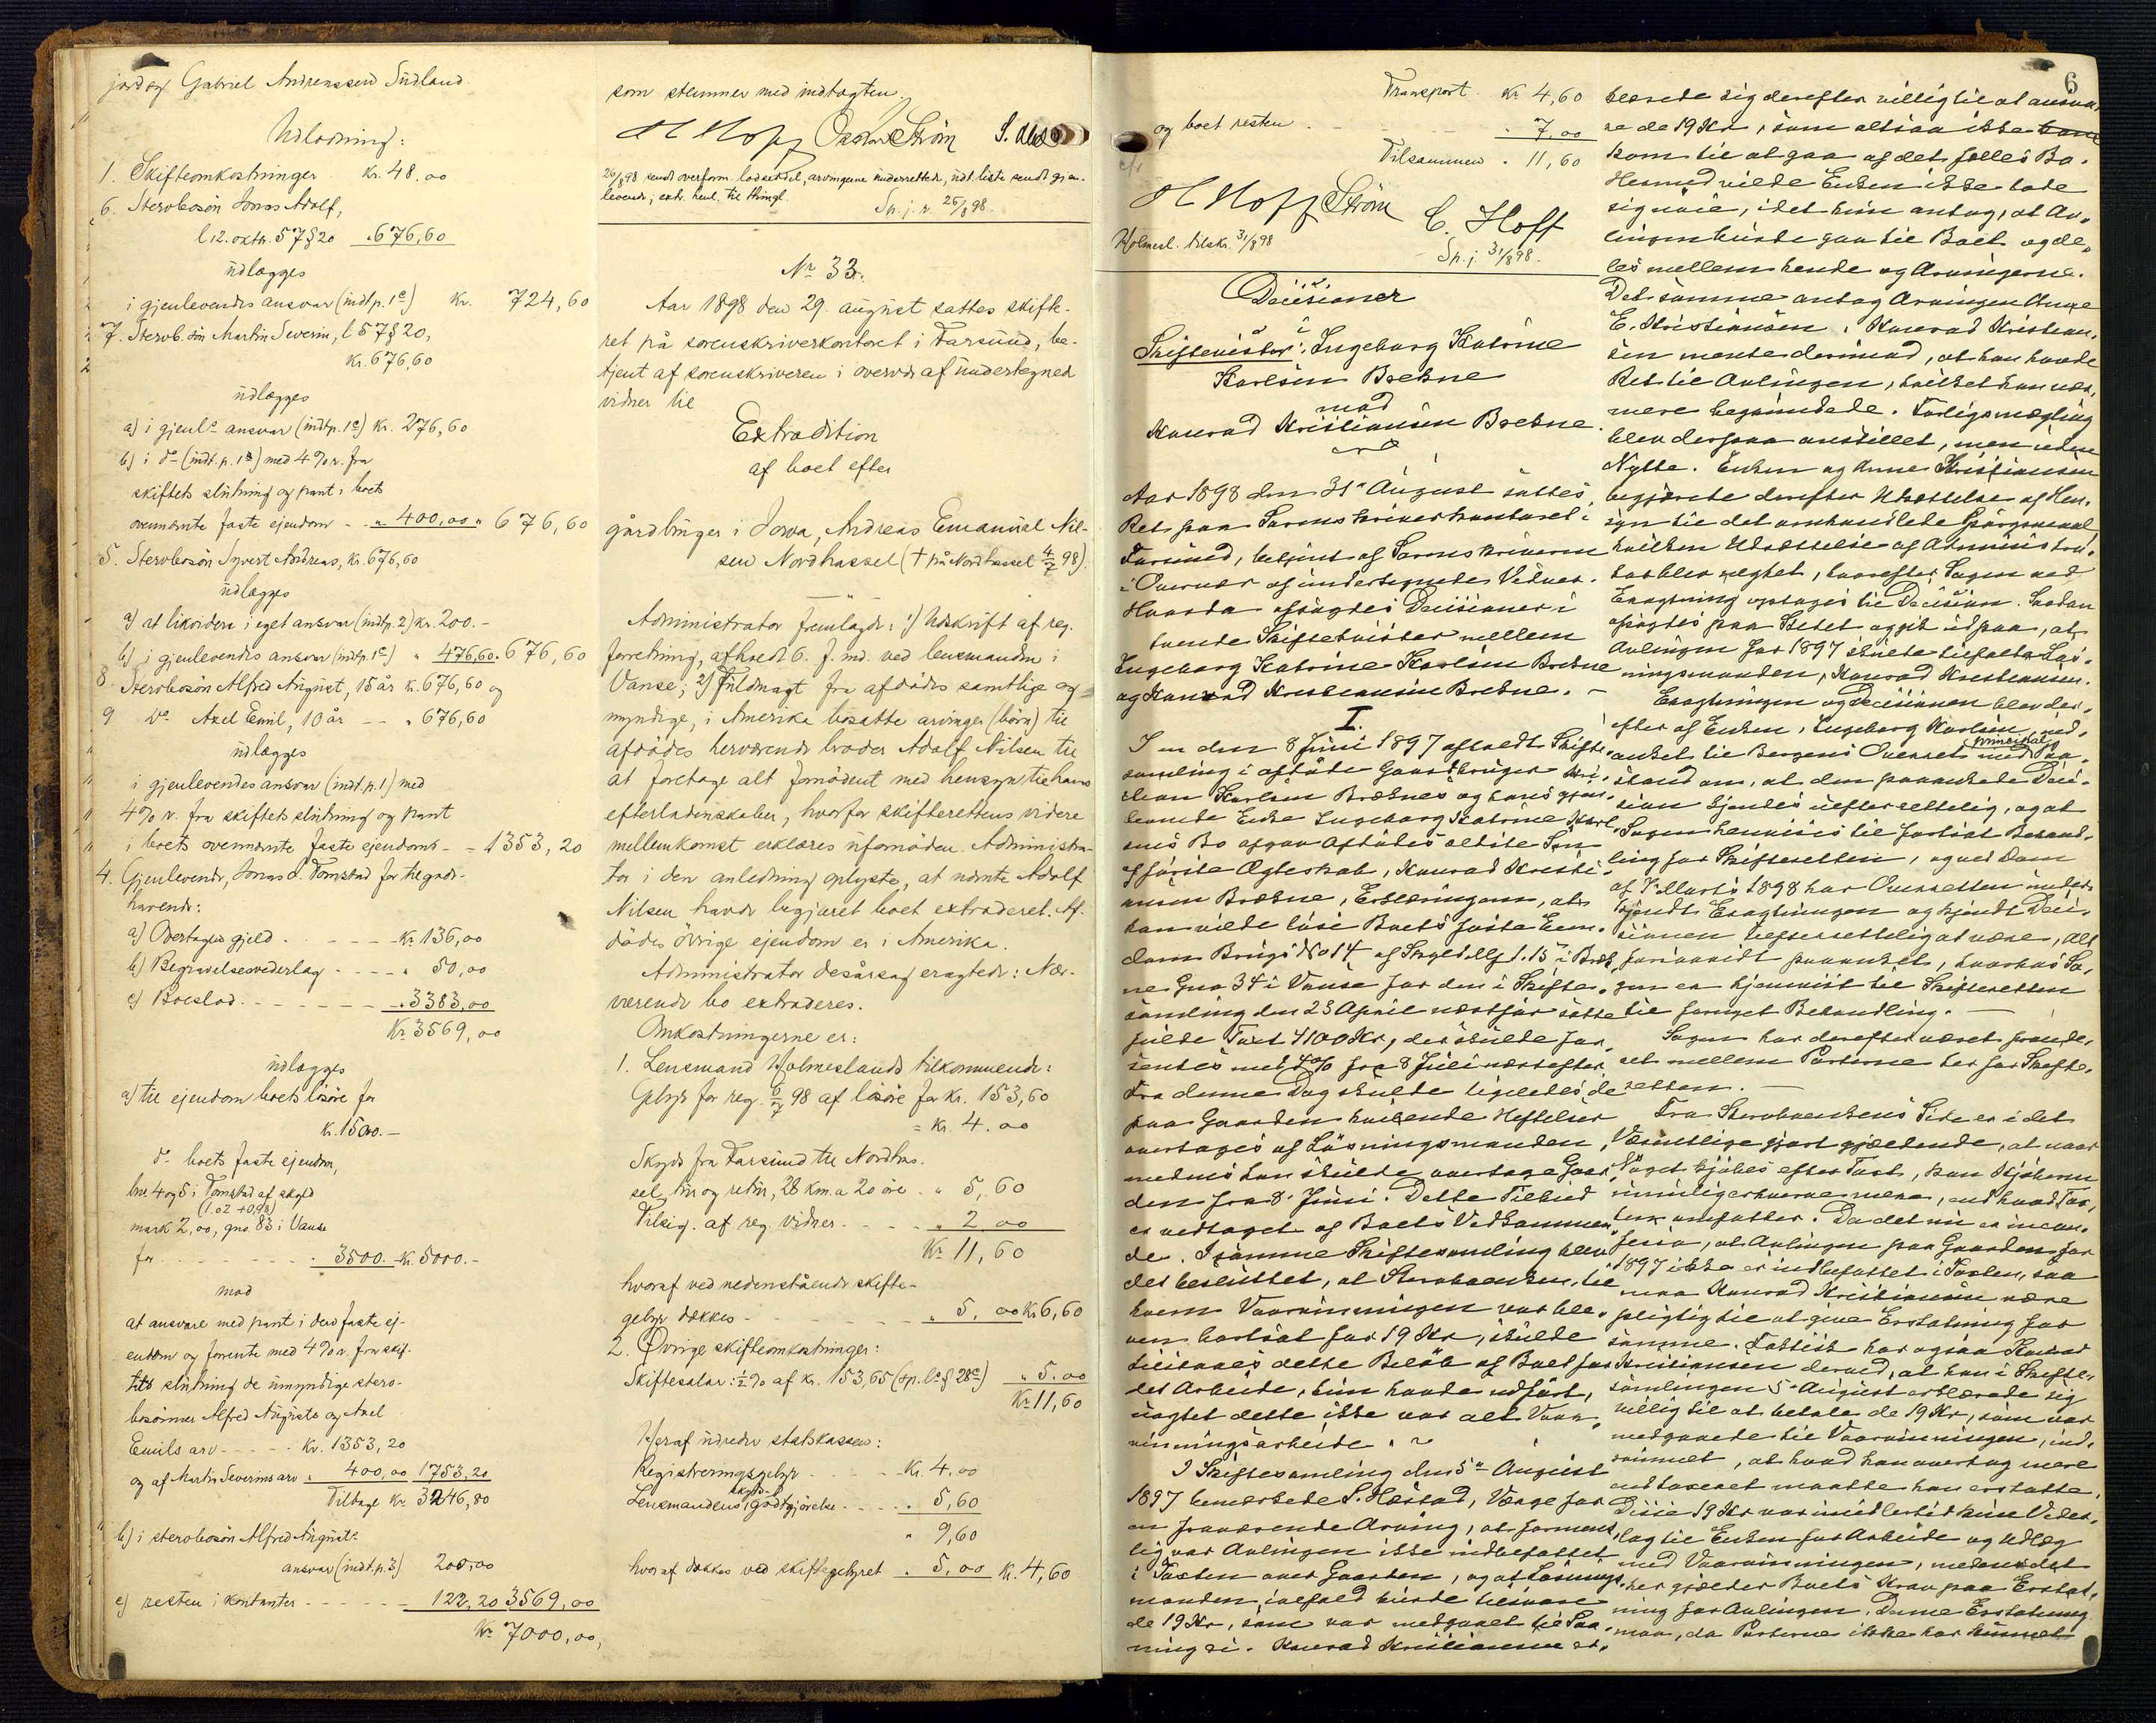 jordeg Gabriel Andreassen Sudland
Udlodning:
1. Skifteomkostninger kr. 48.00
6. Stervbosön Jonas Adolf,
l 12. oktb. 57 § 20 " 676,60
udlægges
i gjenlevendes ansvar (indt. p. 1c) kr. 724,60
7. Stervb. sön Martin Severin, l 57 § 20,
kr. 676,60
udlægges
a) i gjenl. ansvar (indt. p. 1c) kr. 276,60
b) i do (indt. p. 1a) med 4% r. fra
skiftets slutning og pant i boets
ovennævnte faste ejendom - " 400,00 " 676,60
5. Stervbosön Syvert Andreas, kr. 676,60
udlægges
a) at likvidere i eget ansvar (indtp. 2) kr. 200.-
b) i gjenlevendes ansvar (indtp. 1c) " 476,60 " 676,60
8 Stervbosön Alfred August, 15 år kr. 676,60 og
9 do Axel Emil, 10 år - - " 676,60
udlægges
i gjenlevendes ansvar (indt. p. 1) med
4% r. fra skiftets slutning og pant
i boets ovennævnte faste ejendom - - 1353,20
4. Gjenlevende, Jonas S. Tomstad for tilgode-
havende:
a) Overtagen gjeld - - - - kr. 136,00
b) Begravelsesvederlag - - - - " 50,00
c) Boeslod - - - - - " 3383,00
Kr. 3569,00
udlægges
a) til ejendom boets lösöre for
kr. 1500.-
do boets faste ejendom,
bnr 4 og 5 i Tomstad af skyld
(1.02 + 0,98)
mark 2,00, gno 83 i Vanse
for - - - - - - 3500.- kr. 5000.-
mod
at ansvare med pant i den faste ej-
endom og forrente med 4% r. fra skif-
tets slutning de umyndige stervbo-
bosönner Alfred Augusts og Axel
Emils arv - - - - kr. 1353,20
og af Martin Severins arv " 400,00 1753,20
Tilbage kr. 3246,80
b) i stervbosön Alfred Augusts
ansvar (indt. p. 3) 200,00
c) resten i kontanter - - - - - 122,20 3569,00
Kr. 7000,00,
som stemmer med indtægten.
H Hoff Oskar Ström S.
26/8 98 sendt overform. lodseddel, arvingerne underrettede, udt. liste sendt gjen-
levende; extr. henl. til thingl.
Sp. j. n. 26/8 98.
No 33.
Aar 1898 den 29. august sattes skifte-
ret på sorenskriverkontoret i Farsund, be-
tjent af sorenskriveren i overvær af undertegnede
vidner til
Extradition
af boet efter
gårdbruger i Iowa, Andreas Emanual Nil-
sen Nordhassel († på Nordhassel 4/7 98).
Administrator fremlagde: 1) Udskrift af reg.
forretning, afholdt 6. f. md. ved lensmanden i
Vanse; 2) Fuldmagt fra afdödes samtlige og
myndige, i Amerika bosatte arvinger (börn) til
afdödes herværende broder Adolf Nilsen til
at foretage alt fornödent med hensyn til hans
efterladenskaber, hvorfor skifterettens videre
mellemkomst erklæres ufornöden. Administra-
tor i den anledning oplyste, at nævnte Adolf
Nilsen havde begjæret boet extraderet. Af-
dödes övrige ejendom er i Amerika.
Administrator desårsag eragtede: Nær-
værende bo extraderes.
Omkostningerne er:
1. Lensmand Holmeslands tilkommende:
Gebyr for reg. 6/7 98 af lösöre for kr. 153,60
= kr. 4.00
Skyds fra Farsund til Nordhas-
sel, tur og retur, 28 km. a 20 öre - " 5,60
Tilsig. af reg. vidner - - - - " 2.00
Kr. 11,60
hvoraf ved nedenstående skifte-
gebyr dækkes - - - - - " 5,00 kr. 6,60
2. Övrige skifteomkostninger:
Skiftesalar: ½% af kr. 153,65 (sp. l. § 28c) " 5.00
Kr. 11,60
Heraf udredes statskassen:
Registreringsgebyr - - - - kr. 4,00
Lensmandens skyds- godtgjörelse - - - - " 5,60
" 9,60
hvoraf dækkes ved skiftegebyret " 5,00 kr. 4,60
Transport kr. 4,60
og boet resten - - - - " 7,00
Tilsammen " 11,60
H Hoff Ström C. Hoff
Holmesl. tilskr. 31/8 98
Sp. j. 31/8 98.
Decisioner
i
Skiftetvister: Ingeborg Katrine
Karlsen Brekne
mod
Konrad Kristiansen Brekne.
Aar 1898 den 31te August sattes
Ret paa Sorenskriverkontoret i
Farsund, betjent af Sorenskriveren
i Overvær af undertegnede Vidner.
Hvorda afsagdes Decisioner i
tvende Skiftetvister mellem
Ingeborg Katrine Karlsen Brekne
og Konrad Kristiansen Brekne. -
I.
I en den 8 Juni 1897 afholdt Skifte-
samling i afdöde Gaardbruger Kri-
stian Karlsen Bræknes og hans gjen-
levende Enke Ingeborg Katrine Karl-
sens Bo afgav Afdödes ældste Sön
af förste Ægteskab, Konrad Kristi-
ansen Brækne, Erklæringen, at
han vilde löse Boets faste Eien-
dom Brugs No 14 af Skyld Mk 1.15 i Bræk-
ne Gno 34 i Vanse for den i Skifte-
samling den 23 April næstfør satte
fulde Taxt 4100 Kr, der skulde for-
rentes med 4% fra 8 Juli næstefter.
Fra denne Dag skulde ligeledes de
paa Gaarden hvilende Heftelser
overtages af Løsningsmanden,
medens han skulde overtage Gaar-
den fra 8. Juni. Dette Tilbud
er vedtaget af Boets Vedkommen-
de. I samme Skiftesamling blev
det besluttet, at Stervboenken, til
hvem Vaarvinningen var ble-
ven bortsat for 19 Kr, skulde
tilstaaes dette Beløb af Boet for
det Arbeide, hun havde udført,
uagtet dette ikke var alt Vaar-
vinningsarbeide. -
I Skiftesamling den 5te August
1897 bemærkede S. Hæstad, Værge for
en fraværende Arving, at forment-
lig var Avlingen ikke indbefattet
i Taxten over Gaarden, og at Løsnings-
manden ialfald burde tilsvare
de 19 Kr, som var medgaaet til Saa-
ningen. Konrad Kristiansen er-
6
klærede sig derefter villig til at ansva-
re de 19 Kr, som altsaa ikke
kom til at gaa af det fælles Bo.
Hermed vilde Enken ikke lade
sig nøie, idet hun antog, at Av-
lingen burde gaa til Boet og de-
les mellem hende og Arvingerne.
Det samme antog Arvingen Anne
E. Kristiansen. Konrad Kristian-
sen mente derimod, at han havde
Ret til Avlingen, hvilket han nær-
mere begrundede. Forligsmægling
blev derpaa anstillet, men uden
Nytte. Enken og Anne Kristiansen
begjærede derefter Udsættelse af Hen-
syn til det omhandlede Spørgsmaal
hvilken Udsættelse af Administra-
tor blev nægtet, hvorefter Sagen ved
Eragtning optoges til Decision. Saadan
afsagdes paa Stedet og gik ud paa, at
Avlingen for 1897 skulde tilfalde Løs-
ningsmanden, Konrad Kristiansen.
Eragtningen og Decisionen blev der-
efter af Enken, Ingeborg Karlsen, ind-
anket til Bergens Overret med principal Paa-
stand om, at den paaankede Deci-
sion kjendes uefterrettelig, og at
Sagen henvises til fortsat Behand-
ling for Skifteretten, og ved Dom
af 7. Marts 1898 har Overretten under-
kjendt Eragtningen og kjendt Deci-
sionen uefterrettelig at være, alt
forsaavidt paaanket, hvorhos Sa-
gen er hjemvist til Skifteretten
til fornyet Behandling. -
Sagen har derefter været procede-
ret mellem Parterne her for Skifte-
retten. -
Fra Stervboenkens Side er i det
Væsentlige gjort gjældende, at naar
Noget kjøbes efter Taxt, kan Kjøberen
umulig erhverve mere, end hvad Tax-
ten omfatter. Da det nu er incon-
fesso, at Avlingen paa Gaarden for
1897 ikke er indbefattet i Taxten, saa
maa Konrad Kristiansen være
pligtig til at give Erstatning for
samme. Faktisk har ogsaa Konrad
Kristiansen derved, at han i Skifte-
samlingen 5te August erklærede sig
villig til at betale de 19 Kr, som var
medgaaede til Vaarvinningen, ind-
rømmet, at hvad han overtog mere
end taxeret maatte han erstatte.
Disse 19 Kr var imidlertid kun Veder-
lag til Enken for Arbeide og Udlæg
med Vaarvinningen, medens det
her gjælder Boets Krav paa Erstat-
ning for Avlingen. Denne Erstatning
maa, da Parterne ikke har kunnet